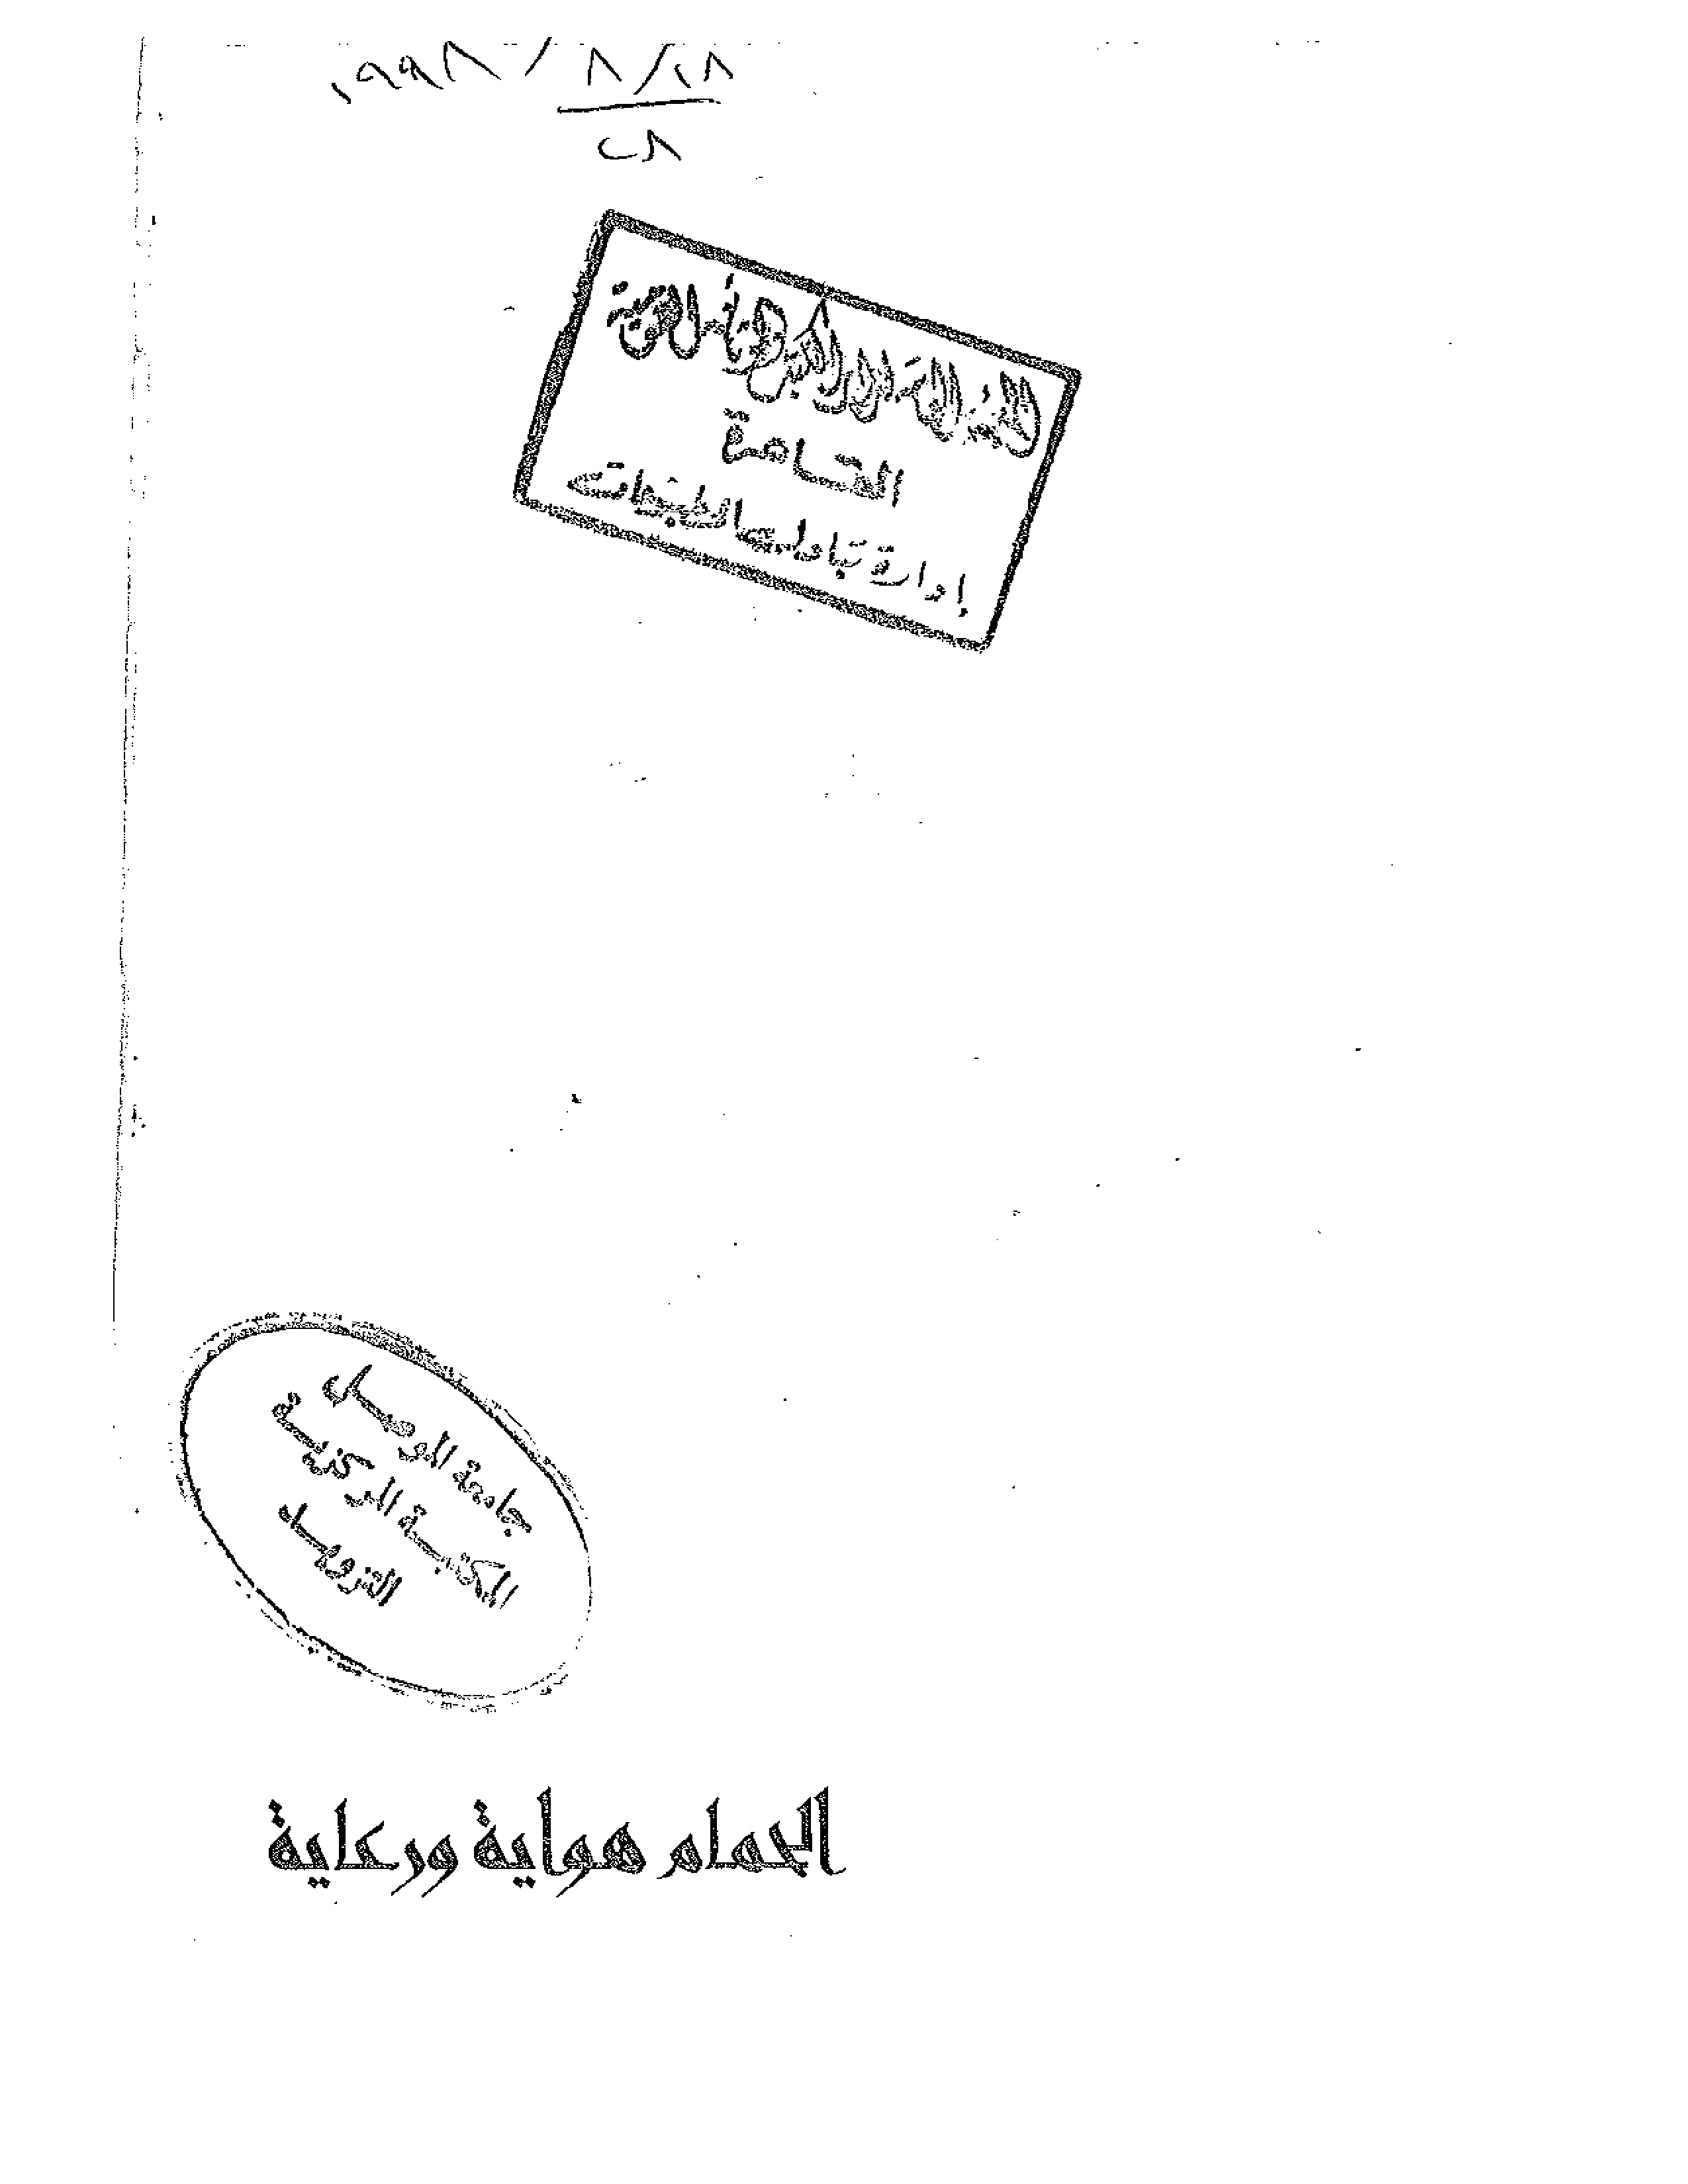 ١٩٩٨ / ٨ / ١٨
٢٨
الهيئة العامة لدار الكتب والوثائق القومية
القاهرة
إدارة تبادل المطبوعات
جامعة الموصل
المكتبة المركزية
التزويد
الحمام هواية ورعاية